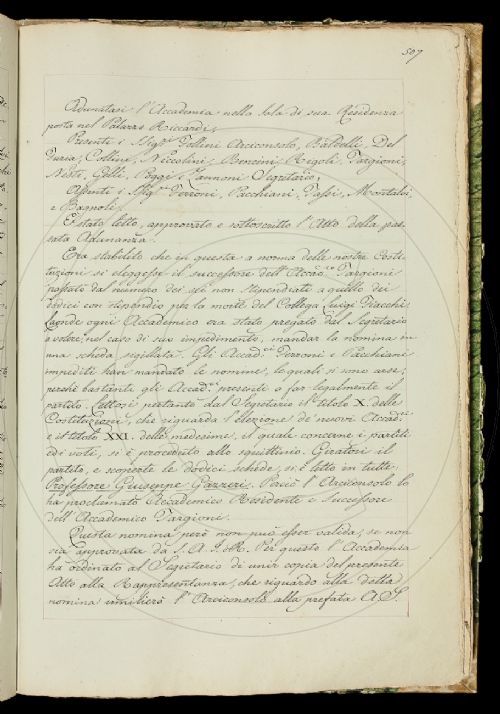 507
Adunatasi l'Accademia nella Sala di sua Residenza
posta nel Palazzo Riccardi;
Presenti i Sigri Follini Arciconsolo, Baldelli, Del
Furia, Collini, Niccolini, Bencini, Rigoli, Targioni,
Nesti, Gelli, Poggi, Zannoni Segretario;
Assenti i Sigri Ferroni, Pacchiani, Tassi, Montalvi,
e Bagnoli.
È stato letto, approvato e sottoscritto l'Atto della pas-
sata Adunanza.
Era stabilito che in questa a norma delle nostre Costi-
tuzioni si eleggesse il successore dell'Accad.co Targioni
passato dal numero dei sei non stipendiati a quello dei
dodici con stipendio per la morte del Collega Luigi Fiacchi.
Laonde ogni Accademico era stato pregato dal Segretario
a volere, nel caso di suo impedimento, mandar la nomina in
una scheda sigillata. Gli Accad.ci Ferroni e Pacchiani
impediti han mandato le nomine, le quali si sono arse,
perchè bastanti gli Accad.ci presenti a far legalmente il
partito. Lettosi pertanto dal Segretario il titolo X. delle
Costituzioni, che riguarda l'elezione de' nuovi Accad.ci
e il titolo XXI. delle medesime, il quale concerne i partiti
ed i voti, si è proceduto allo squittinio. Giratosi il
partito, e scoperte le dodici schede, si è letto in tutte,
Professore Giuseppe Gazzeri. Perciò l'Arciconsolo lo
ha proclamato Accademico Residente e Successore
dell'Accademico Targioni.
Questa nomina però non può esser valida, se non
sia approvata da S. A. I. e R. Per questo l'Accademia
ha ordinato al Segretario di unir copia del presente
Atto alla Rappresentanza, che riguardo alla detta
nomina umilierà l'Arciconsolo alla prefata A. S.